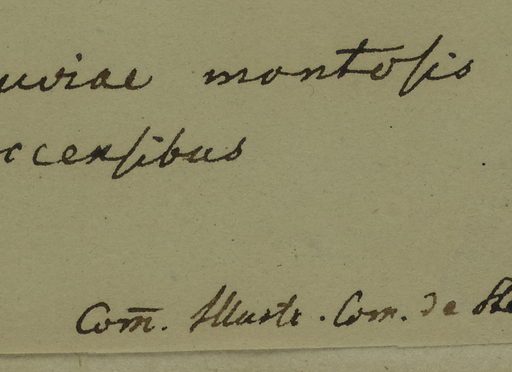 uviae montosis
ccensibus
Com̄. Illustr. Com. de Ste